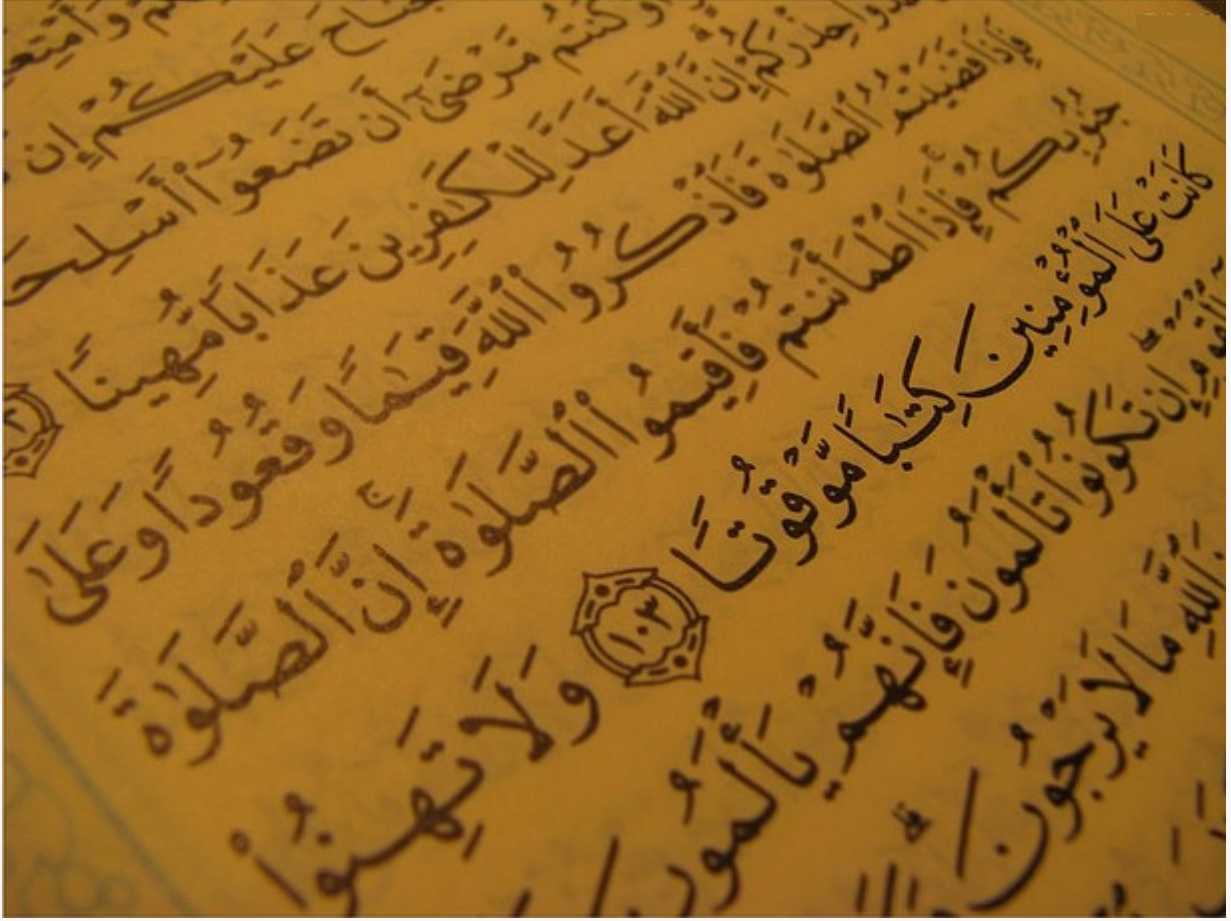 عَلَيْكُمْ إِن
كُنتُم مَّرْضَىٰٓ أَن تَضَعُوٓا۟
حِذْرَكُمْ إِنَّ ٱللَّهَ أَعَدَّ لِلْكَـٰفِرِينَ عَذَابًا مُّهِينًا
فَإِذَا قَضَيْتُمُ ٱلصَّلَوٰةَ فَٱذْكُرُوا۟ ٱللَّهَ قِيَـٰمًا وَقُعُودًا وَعَلَىٰ
جُنُوبِكُمْ فَإِذَا ٱطْمَأْنَنتُمْ فَأَقِيمُوا۟ ٱلصَّلَوٰةَ إِنَّ ٱلصَّلَوٰةَ
كَانَتْ عَلَى ٱلْمُؤْمِنِينَ كِتَـٰبًا مَّوْقُوتًا ١٠٣ وَلَا تَهِنُوا۟
ٱلْقَوْمِ إِن تَكُونُوا۟ تَأْلَمُونَ فَإِنَّهُمْ يَأْلَمُونَ
ٱللَّهِ مَا لَا يَرْجُونَ